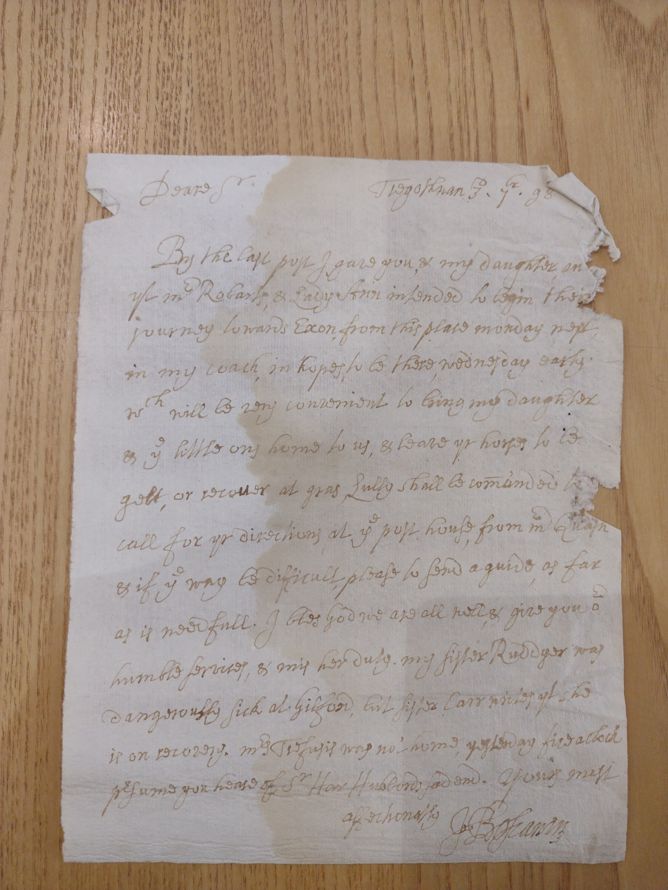 Deare Sr. Tregothnan 7. 98
By the last post I gave you, & my daughter an
yt mr Robarts, & Lady Ann intended to begin their
journey towards Exon, from this place monday next,
in my coach, in hopes, to be there, wednesday early.
wch will be very convenient to bring my daughter
& ye little ons home to us, & leave yr horses to be
gelt, or recover at gras, Lully shall be comanded to
call for yr directions at ye post house, from mr
& if ye way be difficult, please to send a guide, as far
as is needfull. I bles God we are all well & give you or
humble services, & mis her duty. my sister Ruddyer was
dangerously sick at Gilford, but sister Carr writes yt she
is on recovery. mrs Trefusis was not home yesterday five a clock
presume you heare of Sr Har: Hubbords end. Yours most
affectionatly Jo: Boscawen